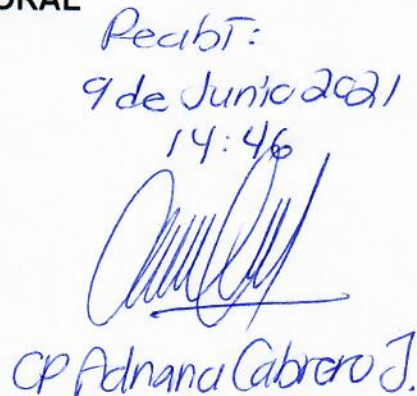 ORAL
Recibí:
9 de Junio 2021
14:46
CP Adriana Cabrera J.